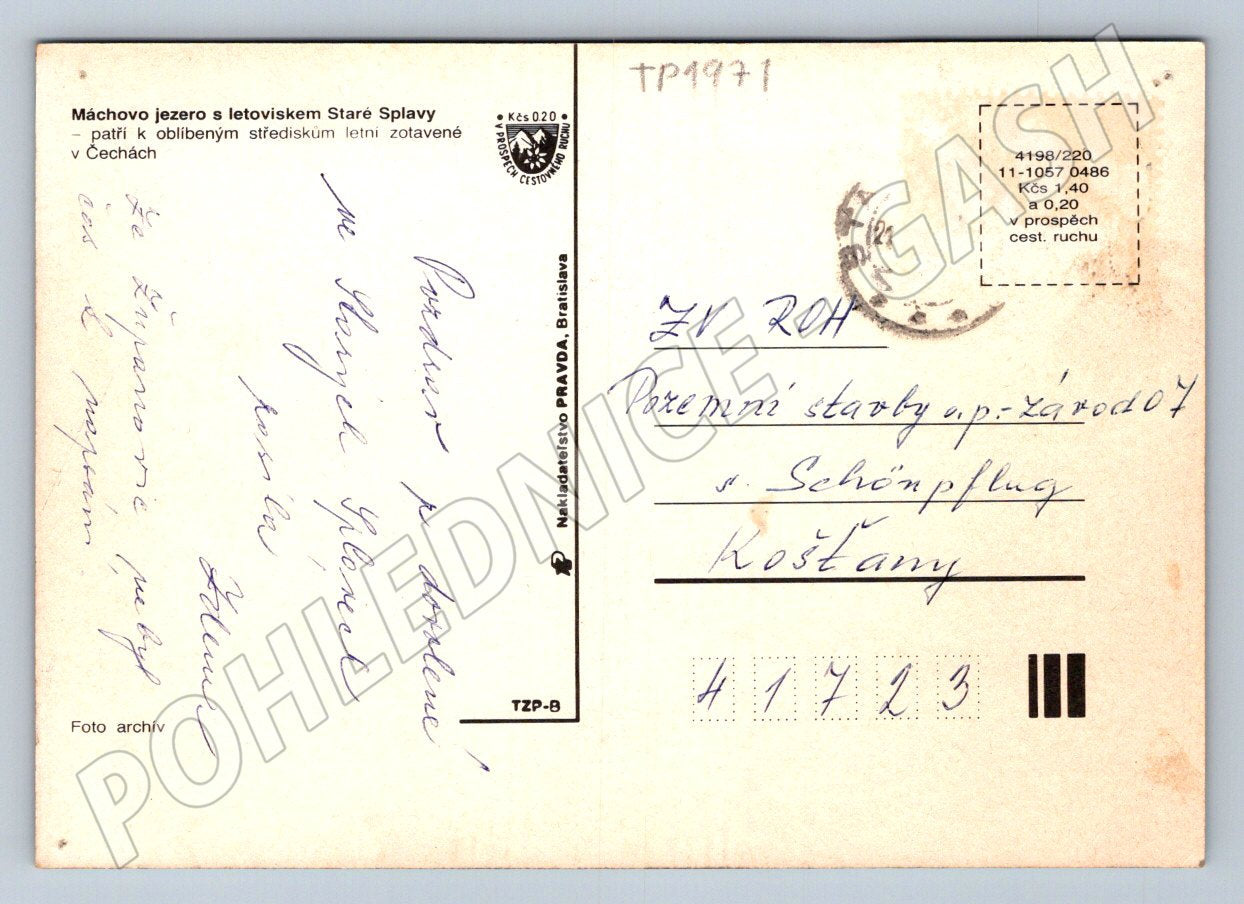 TP1971
Máchovo jezero s letoviskem Staré Splavy
– patří k oblíbeným střediskům letní zotavené
v Čechách
Kčs 0.20
V PROSPĚCH CESTOVNÉHO RUCHU
4198/220
11-1057 0486
Kčs 1,40
a 0,20
v prospěch
cest. ruchu
21
Pozdrav z dovolené
ve Starých Splavech
zasílá
Ze Županovic nebyl
čas
Nakladateľstvo PRAVDA, Bratislava
ZV ROH
Pozemní stavby o.p.-závod 07
s. Schönpflug
Košťany
41723
TZP-8
Foto archív
POHLEDNICE - GASH